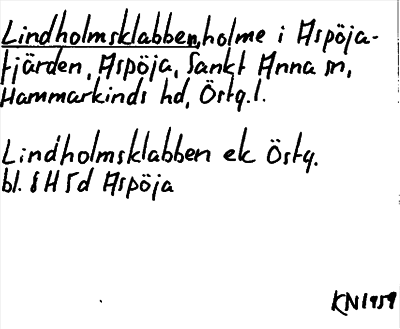 Lindholmsklabben, holme i Aspöja-
fjärden, Aspöja, Sankt Anna sn,
Hammarkinds hd, Östg.l.
Lindholmsklabben ek Östg.
bl. 8H 5d Aspöja
KN1959